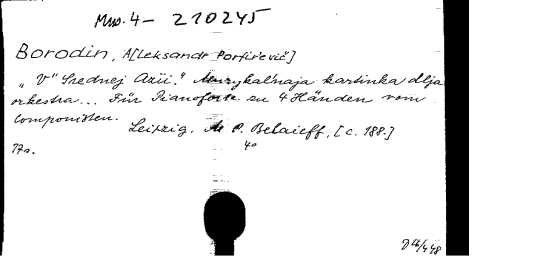 Mus. 4 - 210245
Borodin, A[leksandr Porfir'evič]
„V" Srednej Azii." Muzykal'naja kartinka dlja
orkestra... Für Pianoforte zu 4 Händen vom
Componisten.
Leipzig, M. P. Belaieff, [c. 188.]
17 s. 4°